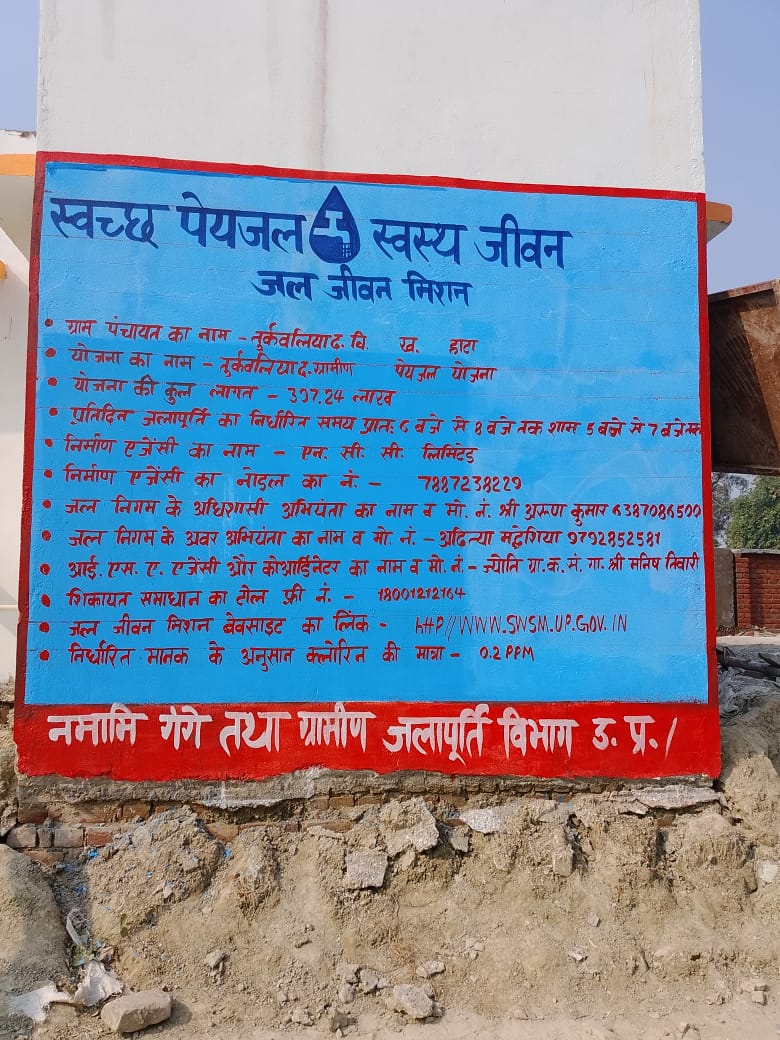 स्वच्छ पेयजल स्वस्थ जीवन
जल जीवन मिशन
• ग्राम पंचायत का नाम - तुर्कवलियाद. वि. ख. हाटा
• योजना का नाम - तुर्कवलियाद. ग्रामीण पेयजल योजना
• योजना की कुल लागत - 397.24 लाख
• प्रतिदिन जलापूर्ति का निर्धारित समय प्रातः 6 बजे से 8 बजे तक शाम 5 बजे से 7 बजे तक
• निर्माण एजेंसी का नाम - एन. सी. सी. लिमिटेड
• निर्माण एजेंसी का नोडल का नं. - 7887238229
• जल निगम के अधिशासी अभियंता का नाम व मो. नं. श्री अरुण कुमार 6387086500
• जल निगम के अवर अभियंता का नाम व मो. नं. - अदित्या मद्धेशिया 9792852581
• आई. एस. ए. एजेंसी और कोआर्डिनेटर का नाम व मो. नं - ज्योति ग्रा. क. सं. गा. श्री मनिष तिवारी
• शिकायत समाधान का टोल फ्री नं. - 18001212164
• जल जीवन मिशन बेवसाइट का लिंक - http//WWW.SWSM.UP.GOV.IN
• निर्धारित मानक के अनुसान क्लोरिन की मात्रा - 0.2 PPM
नमामि गंगे तथा ग्रामीण जलापूर्ति विभाग उ. प्र. /